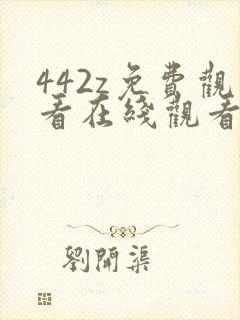 442z免費觀
看在綫觀看
劉開渠